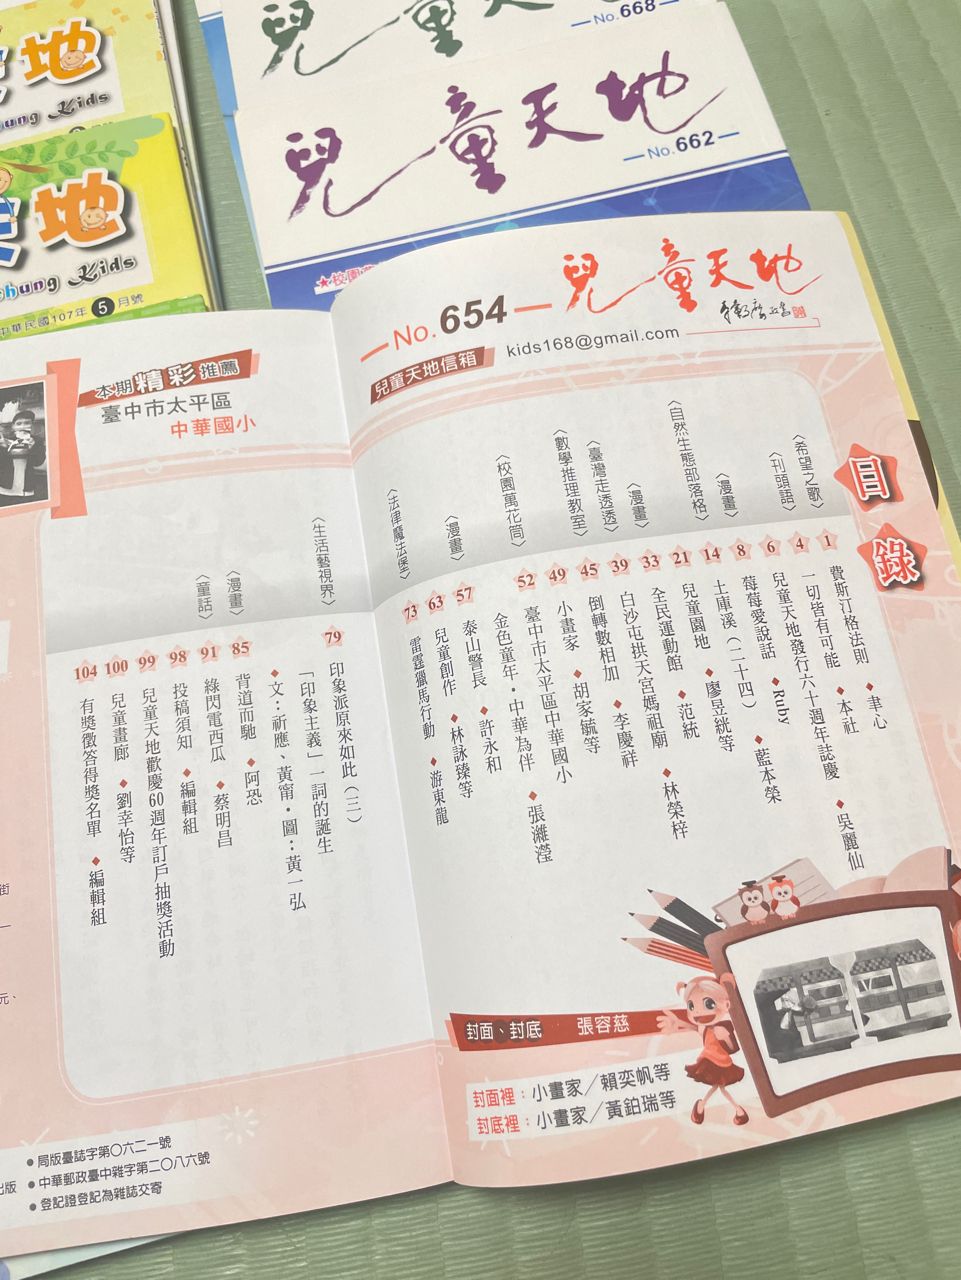 地
Kids
地
Kids
中華民國107年 5 月號
兒童天地
No.668
兒童天地
No.662
★校園
No.654
兒童天地
兒童天地信箱
kids168@gmail.com
目錄
〈希望之歌〉
1 費斯汀格法則 ◆ 聿心
〈刊頭語〉
4 一切皆有可能 ◆ 本社
6 兒童天地發行六十週年誌慶 ◆ 吳麗仙
〈漫畫〉
8 莓莓愛說話 ◆ Ruby
〈自然生態部落格〉
14 土庫溪（二十四） ◆ 藍本榮
21 兒童園地 ◆ 廖昱絖等
〈漫畫〉
33 全民運動館 ◆ 范統
〈臺灣走透透〉
39 白沙屯拱天宮媽祖廟 ◆ 林榮梓
〈數學推理教室〉
45 倒轉數相加 ◆ 李慶祥
49 小畫家 ◆ 胡家毓等
〈校園萬花筒〉
52 臺中市太平區中華國小
金色童年・中華為伴 ◆ 張濰瀅
〈漫畫〉
57 泰山警長 ◆ 許永和
63 兒童創作 ◆ 林詠臻等
〈法律魔法堡〉
73 雷霆獵馬行動 ◆ 游東龍
本期精彩推薦
臺中市太平區
中華國小
〈生活藝視界〉
79 印象派原來如此（三）
「印象主義」一詞的誕生
◆ 文：祈應、黃甯・圖：黃一弘
〈漫畫〉
85 背道而馳 ◆ 阿恐
〈童話〉
91 綠閃電西瓜 ◆ 蔡明昌
98 投稿須知 ◆ 編輯組
99 兒童天地歡慶60週年訂戶抽獎活動
100 兒童畫廊 ◆ 劉幸怡等
104 有獎徵答得獎名單 ◆ 編輯組
封面、封底 張容慈
封面裡：小畫家／賴奕帆等
封底裡：小畫家／黃鉑瑞等
●局版臺誌字第〇六二一號
●中華郵政臺中雜字第二〇八六號
●登記證登記為雜誌交寄
出版
街
元、